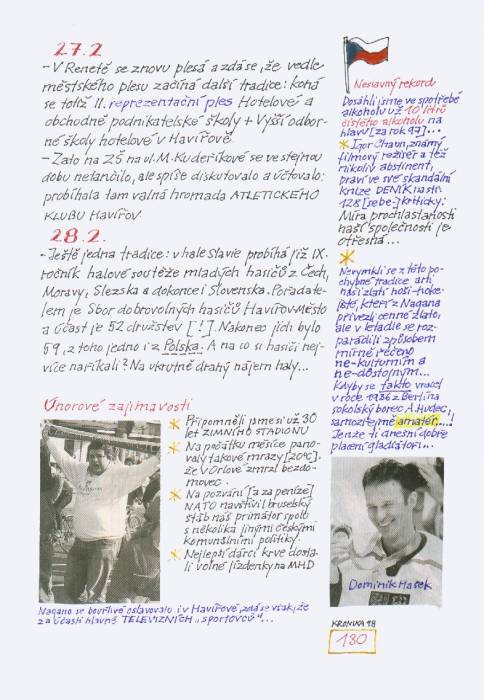 27.2
- V Renetě se znovu plesá a zdá se, že vedle
městského plesu začíná další tradice: koná
se totiž II. reprezentační ples Hotelové a
obchodně podnikatelské školy + Vyšší odbor-
né školy hotelové v Havířově.
- Zato na ZŠ na ul. M. Kudeříkové se ve stejnou
dobu netančilo, ale spíše diskutovalo a účtovalo:
probíhala tam valná hromada ATLETICKÉHO
KLUBU Havířov.
28.2.
- Ještě jedna tradice: v hale Slavie probíhá již IX.
ročník halové soutěže mladých hasičů z Čech,
Moravy, Slezska a dokonce i Slovenska. Pořadate-
lem je Sbor dobrovolných hasičů Havířov-Město
a účast je 52 družstev [!]. Nakonec jich bylo
59, z toho jedno i z Polska. A na co si hasiči nej-
více naříkali? Na ukrutně drahý nájem haly...
Únorové zajímavosti
* Připomněli jsme si už 30
let ZIMNÍHO STADIONU
* Na počátku měsíce pano-
valy takové mrazy [20°C],
že v Orlové zmrzl bezdo-
movec.
* Na pozvání [a za peníze]
NATO navštívil bruselský
štáb náš primátor spolu
s několika jinými českými
komunálními politiky.
* Nejlepší dárci krve dosta-
li volné jízdenky na MHD
Nagano se bouřlivě oslavovalo i v Havířově, zdá se však, že
za účasti hlavně TELEVIZNÍCH „sportovců"...
Neslavný rekord
Dosáhli jsme ve spotřebě
alkoholu už 10 litrů
čistého alkoholu na
hlavu [za rok 97]...
* Igor Chaun, známý
filmový režisér a též
nikoliv abstinent,
praví ve své skandální
knize DENÍK na str.
128 [sebe-]kriticky:
Míra prochlastanosti
naší společnosti je
otřesná...
*
Nevymkli se z této po-
chybné tradice ani
naši zlatí hoši-hoke-
jisté, kteří z Nagana
přivezli cenné zlato,
ale v letadle se roz-
parádili způsobem
mírně řečeno
ne-kulturním a
ne-důstojným...
Kdyby se takto vracel
v roce 1936 z Berlína
sokolský borec A. Hudec,
samozřejmě amatér...!
Jenže ti dnešní dobře
placení gladiátoři...
Dominik Hašek
KRONIKA 98
130